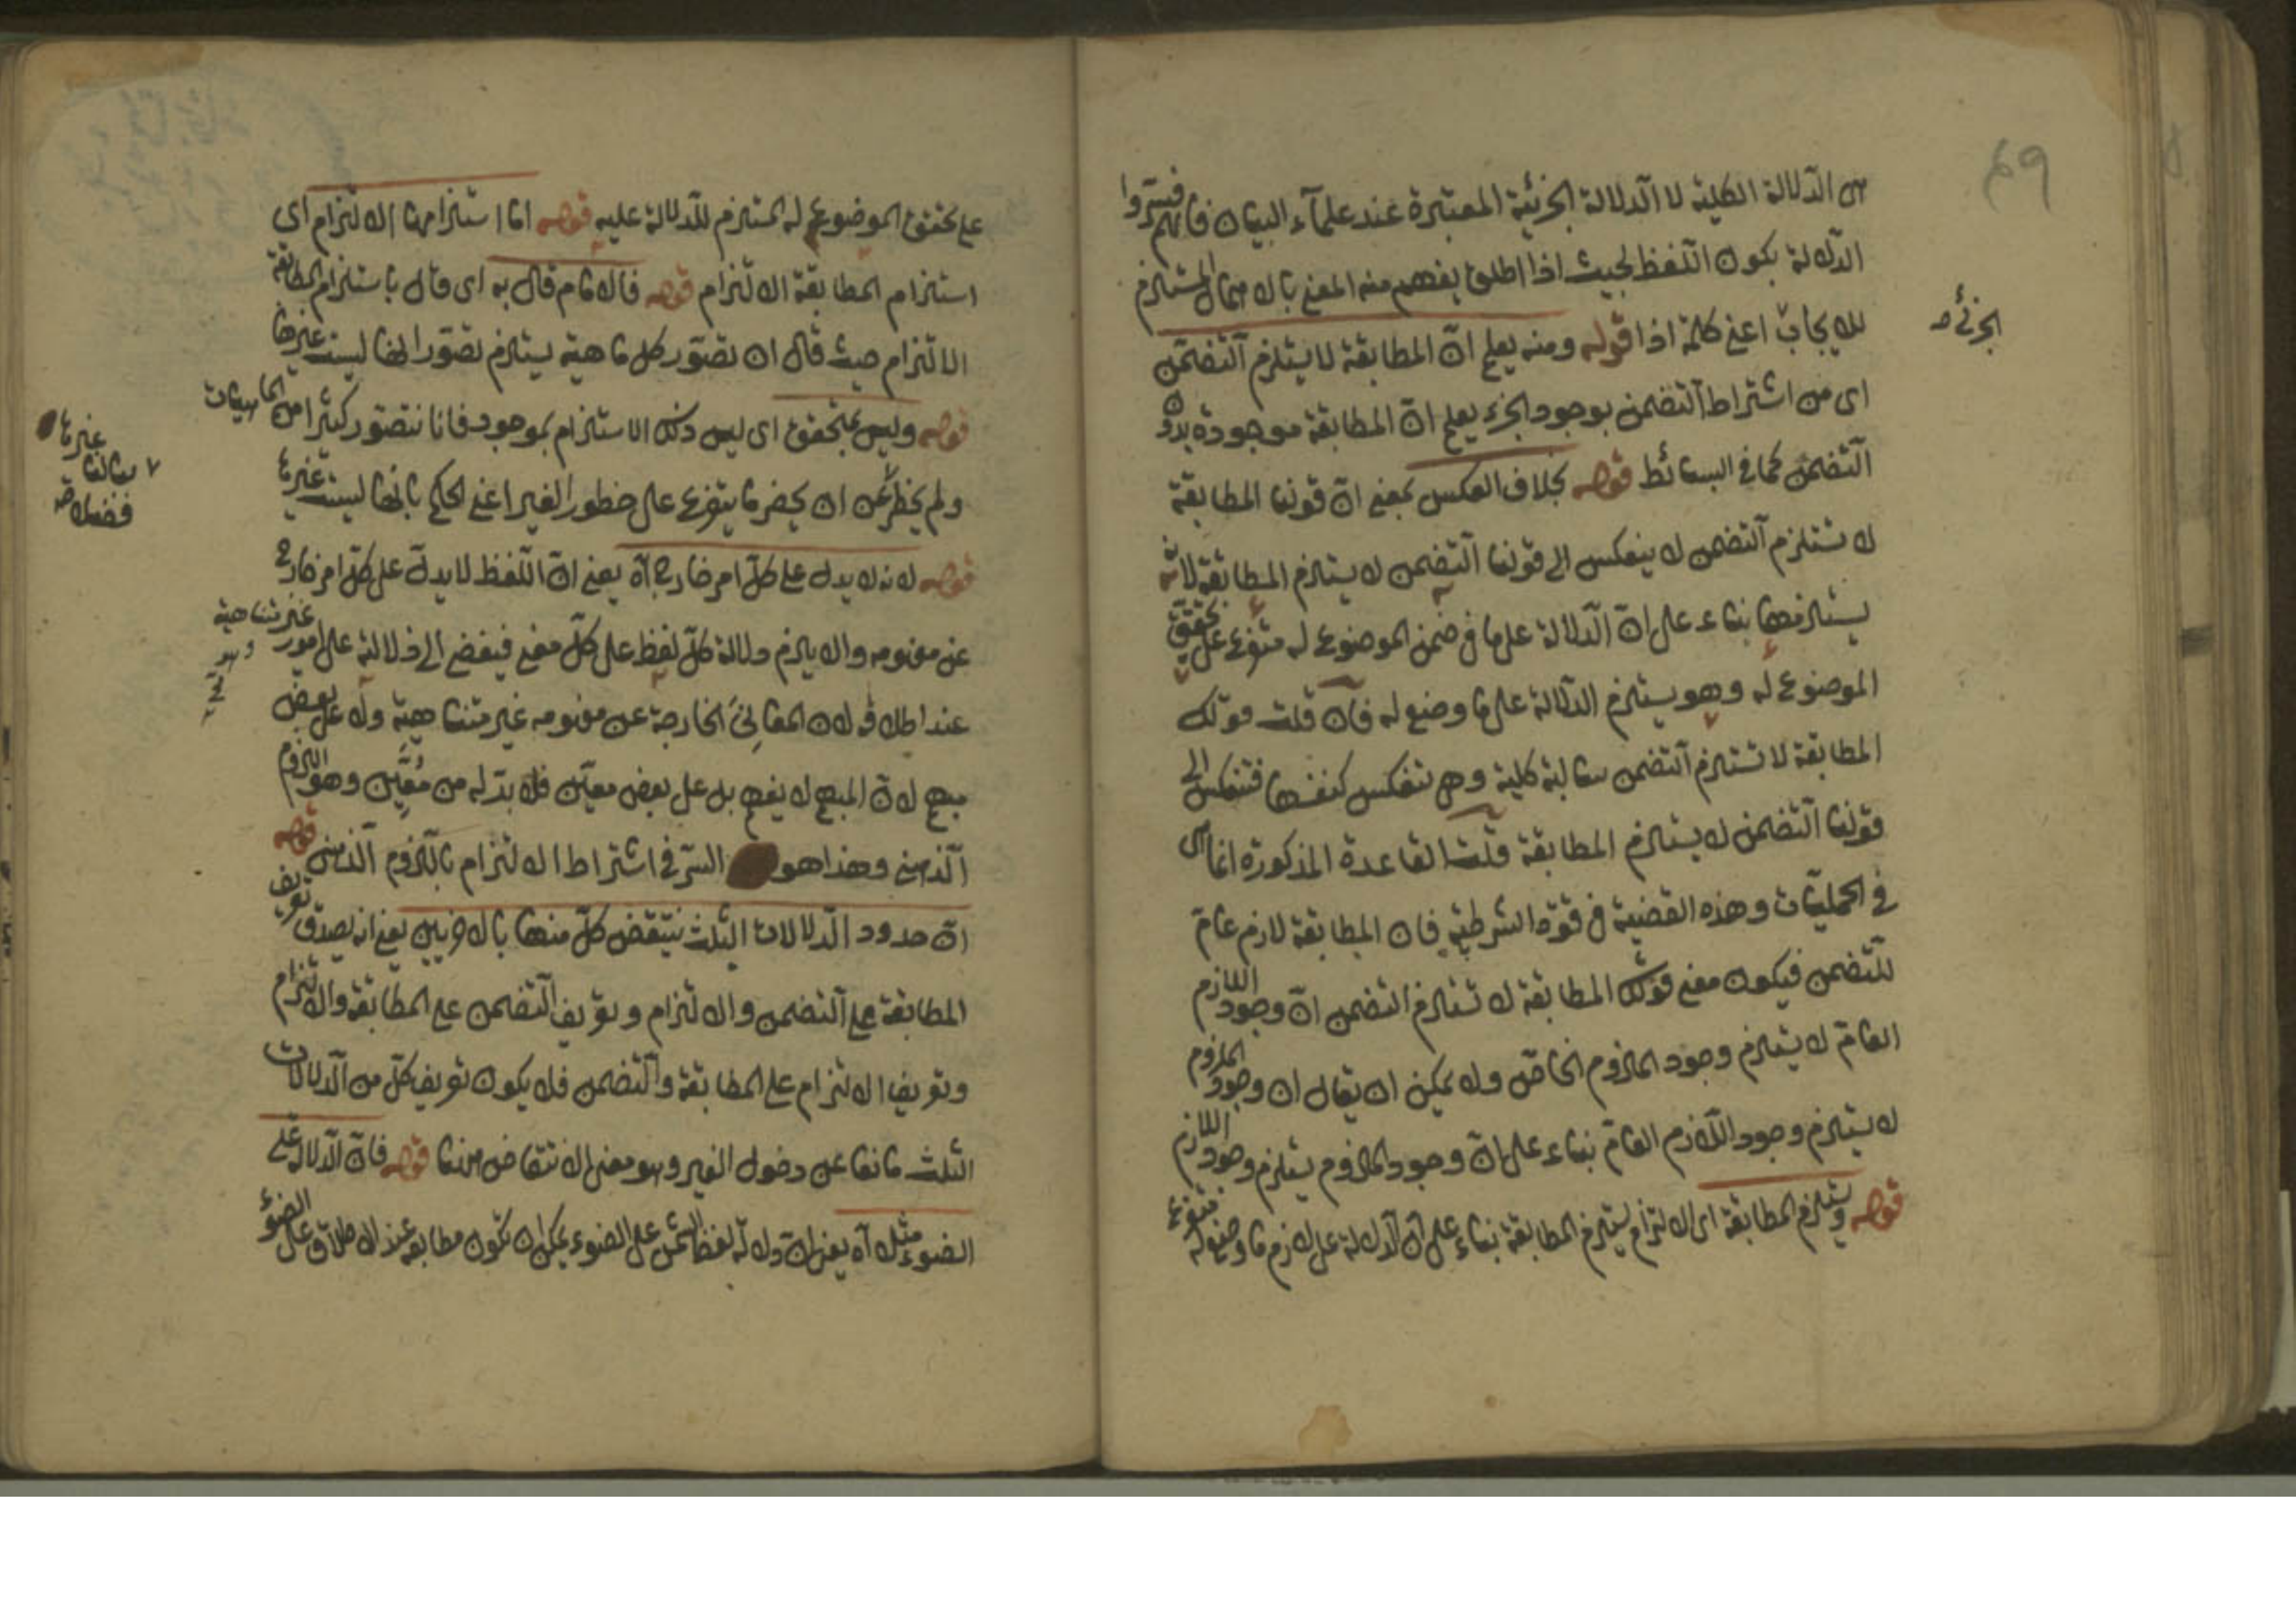 ٤٩
هى الدلالة الكلية لا الدلالة الجزئية المعتبرة عند علمآء البيان فانهم فسروا
الدلالة بكون اللفظ بحيث اذا اطلق يفهم منه المعنى بالاهمال المستلزم
للايجاب اعنى كلمة اذا قوله ومنه يعلم ان المطابقة لا يستلزم التضمن
الجزئى صح
اى من اشتراط التضمن بوجود الجزء يعلم ان المطابقة موجودة بدون
التضمن كما فى البسائط قوله بخلاف العكس بمعنى ان قولنا المطابقة
لا تستلزم التضمن لا ينعكس الى قولنا التضمن لا يستلزم المطابقة لانه
يستلزمها بناء على ان الدلالة على ما فى ضمن الموضوع له متفرع على تحقق
الموضوع له وهو يستلزم الدلالة على ما وضع له فان قلت قولك
المطابقة لا تستلزم التضمن سالبة كلية وهى تنعكس كنفسها فتنعكس الى
قولنا التضمن لا يستلزم المطابقة قلت القاعدة المذكورة انما هى
فى الحمليات وهذه القضية فى قوة الشرطية فان المطابقة لازم عام
للتضمن فيكون معنى قولك المطابقة لا تستلزم التضمن ان وجود اللازم
العام لا يستلزم وجود الملزوم الخاص ولا يمكن ان يقال ان وجود الملزوم
لا يستلزم وجود اللازم العام بناء على ان وجود الملزوم يستلزم وجود اللازم
قوله ويستلزم المطابقة اى الالتزام يستلزم المطابقة بناء على ان الدلالة على لازم ما وضع له متفرع
على تحقق الموضوع له المستلزم للدلالة عليه قوله اما استلزامها الالتزام اى
استلزام المطابقة الالتزام قوله فالامام قال به اى قال باستلزام المطابقة
الالتزام حيث قال ان تصور كل ماهية يستلزم تصور انها ليست غيرها
قوله وليس بمتحقق اى ليس ذلك الاستلزام بموجود فانا نتصور كثيرا من الماهيات
ولم يخطر غير ان يحضر ما يتفرع على خطور الغير اعنى الحكم بانها ليست غيرها
غيرها
ببالنا
فضلا صح
قوله لانه لا يدل على كل امر خارج آه يعنى ان اللفظ لا يدل على كل امر خارج
عن مفهومه والا يلزم دلالة كل لفظ على كل معنى فيفضى الى دلالته على امور غير متناهية
وهو مح
عند اطلاقه لان المعانى الخارجة عن مفهومه غير متناهية ولا على بعض
مبهم لان المبهم لا يفهم بل على بعض معين فلا بد له من معين وهو اللزوم
الذهنى وهذا هو السر فى اشتراط الالتزام باللزوم الذهنى قوله
ان حدود الدلالات الثلث ينتقض كل منها بالاخريين يعنى انه يصدق تعريف
المطابقة على التضمن والالتزام وتعريف التضمن على المطابقة والالتزام
وتعريف الالتزام على المطابقة والتضمن فلا يكون تعريف كل من الدلالات
الثلث مانعا عن دخول الغير وهو معنى الانتقاض منها قوله فان الدلالة على
الضوء مثلا آه يعنى ان دلالة لفظ الشمس على الضوء يمكن ان تكون مطابقة عند الاطلاق على الضوء